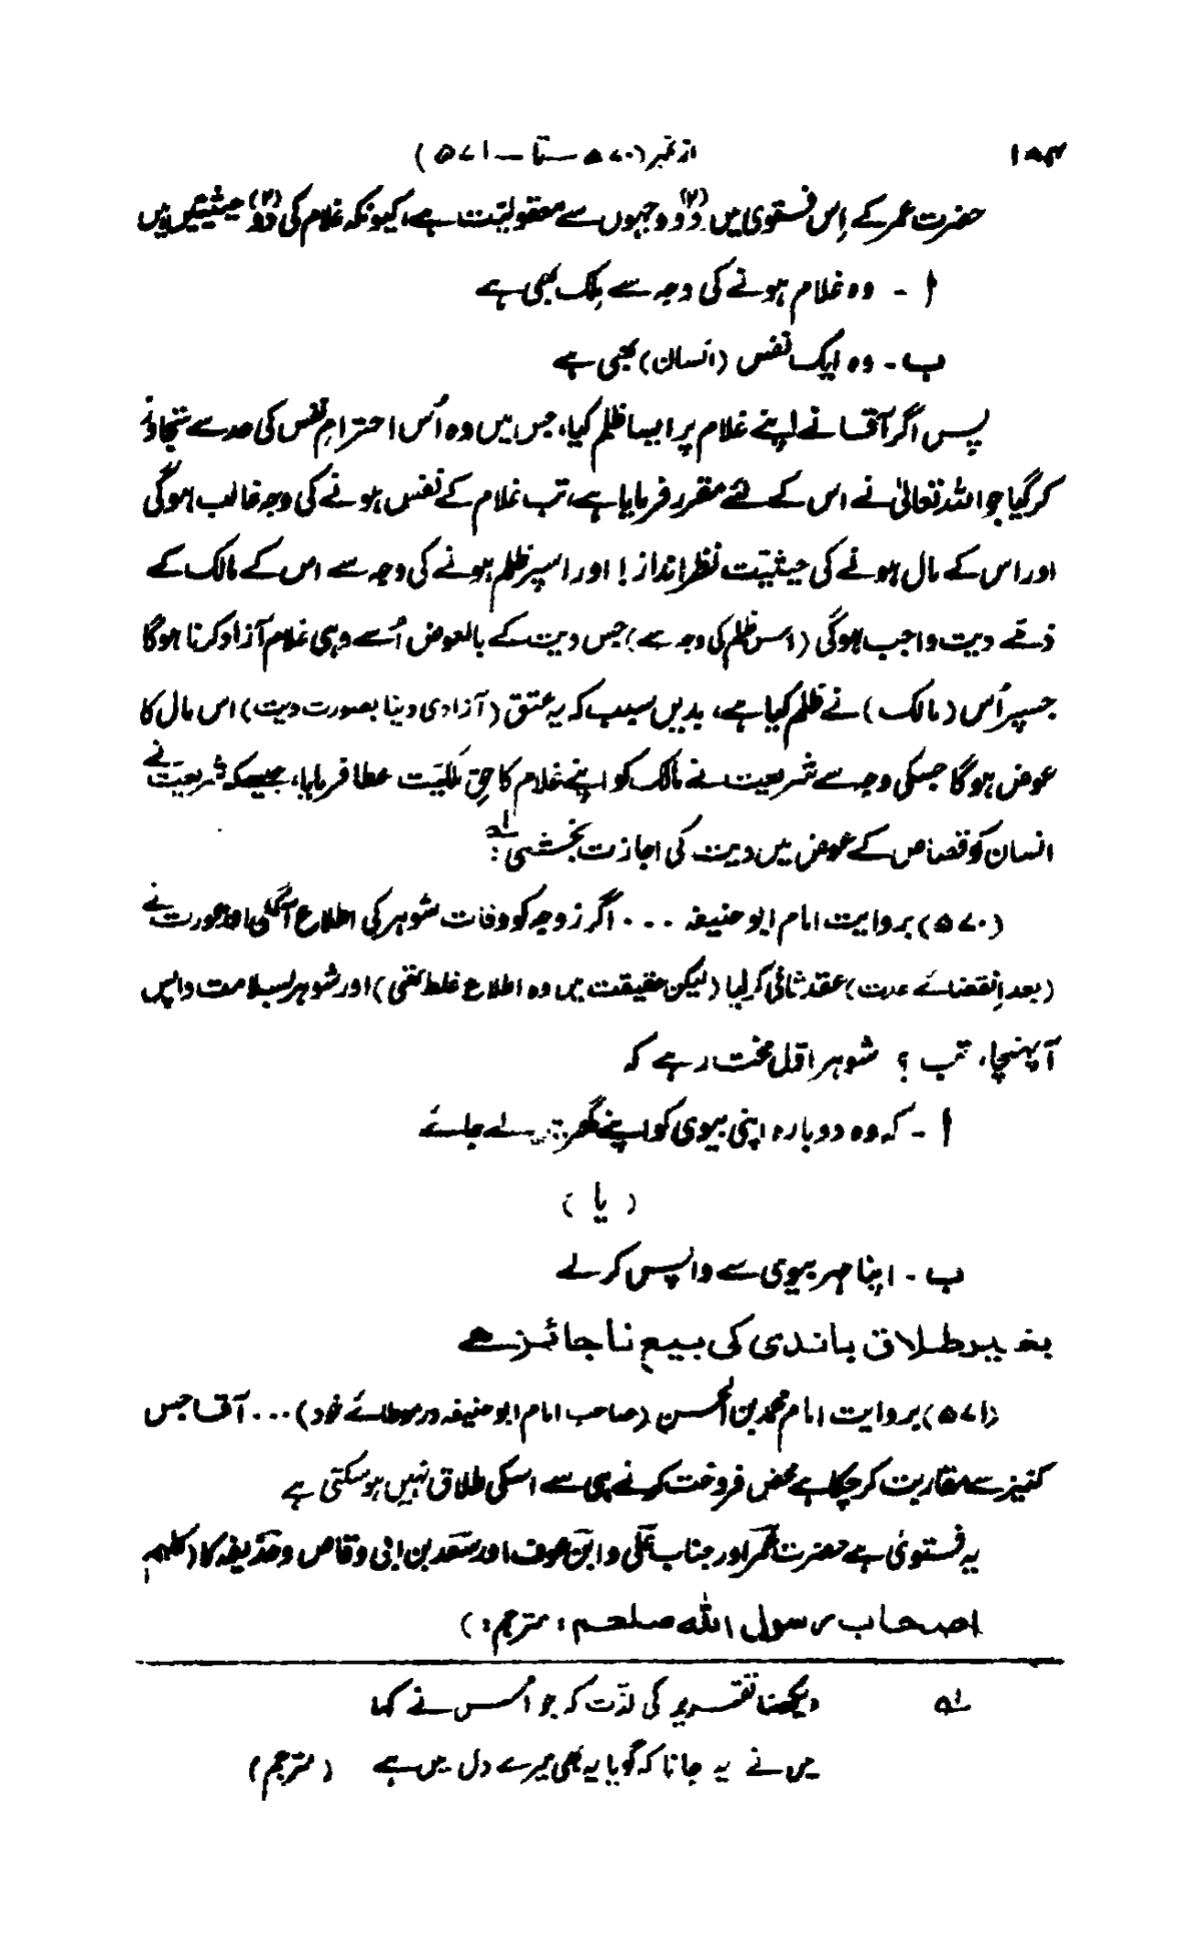 ۱۵۳ از نمبر (۵۷۰ – تا – ۵۷۱)
حضرت عمر کے اِس فتویٰ میں دو (۲) وجہوں سے معقولیّت ہے، کیونکہ غلام کی دو (۲) حیثیتیں ہیں
ا - وہ غلام ہونے کی وجہ سے مِلک بھی ہے
ب - وہ ایک نفس (انسان) بھی ہے
پس اگر آقا نے اپنے غلام پر ایسا ظلم کیا، جس میں وہ اُس احترامِ نفس کی حد سے تجاوز
کر گیا جو اللہ تعالیٰ نے اس کے لئے مقرر فرمایا ہے، تب غلام کے نفس ہونے کی وجہ غالب ہوگی
اور اس کے مال ہونے کی حیثیّت نظر انداز! اور اسپر ظلم ہونے کی وجہ سے اس کے مالک کے
ذمّے دیت واجب ہوگی (اس ظلم کی وجہ سے) جس دیت کے بالعوض اُسے وہی غلام آزاد کرنا ہوگا
جسپر اُس (مالک) نے ظلم کیا ہے، بدیں سبب کہ یہ عتق (آزادی دینا بصورت دیت) اس مال کا
عوض ہوگا جسکی وجہ سے شریعت نے مالک کو اپنے غلام کا حقِ ملکیّت عطا فرمایا، جیسکہ شریعت نے
انسان کو قصاص کے عوض میں دیت کی اجازت بخشی : لہ
(۵۷۰) بروایت امام ابو حنیفہ ... اگر زوجہ کو وفات شوہر کی اطلاع آگئی اور عورت نے
(بعد اِنقضائے عدت) عقد ثانی کر لیا (لیکن حقیقت میں وہ اطلاع غلط تھی) اور شوہر بسلامت واپس
آ پہنچا، تب ؟ شوہر اوّل مختار ہے کہ
ا - کہ وہ دوبارہ اپنی بیوی کو اپنے گھر لے جائے
( یا )
ب - اپنا مہر بیوی سے واپس کر لے
بغیر طلاق باندی کی بیع ناجائز ہے
(۵۷۱) بروایت امام محمد بن الحسن (صاحب امام ابو حنیفہ در موطائے خود) ... آقا جس
کنیز سے مقاربت کر چکا ہے محض فروخت کرنے ہی سے اسکی طلاق نہیں ہو سکتی ہے
یہ فتویٰ ہے حضرت عمر اور جناب علی و ابن عوف اور سعد بن ابی وقاص و حذیفہ کا (کلہم
اصحاب رسول اللہ صلعم : مترجم :)
لہ دیکھنا تقریر کی لذّت کہ جو اُس نے کہا
میں نے یہ جانا کہ گویا یہ بھی میرے دل میں ہے (مترجم)